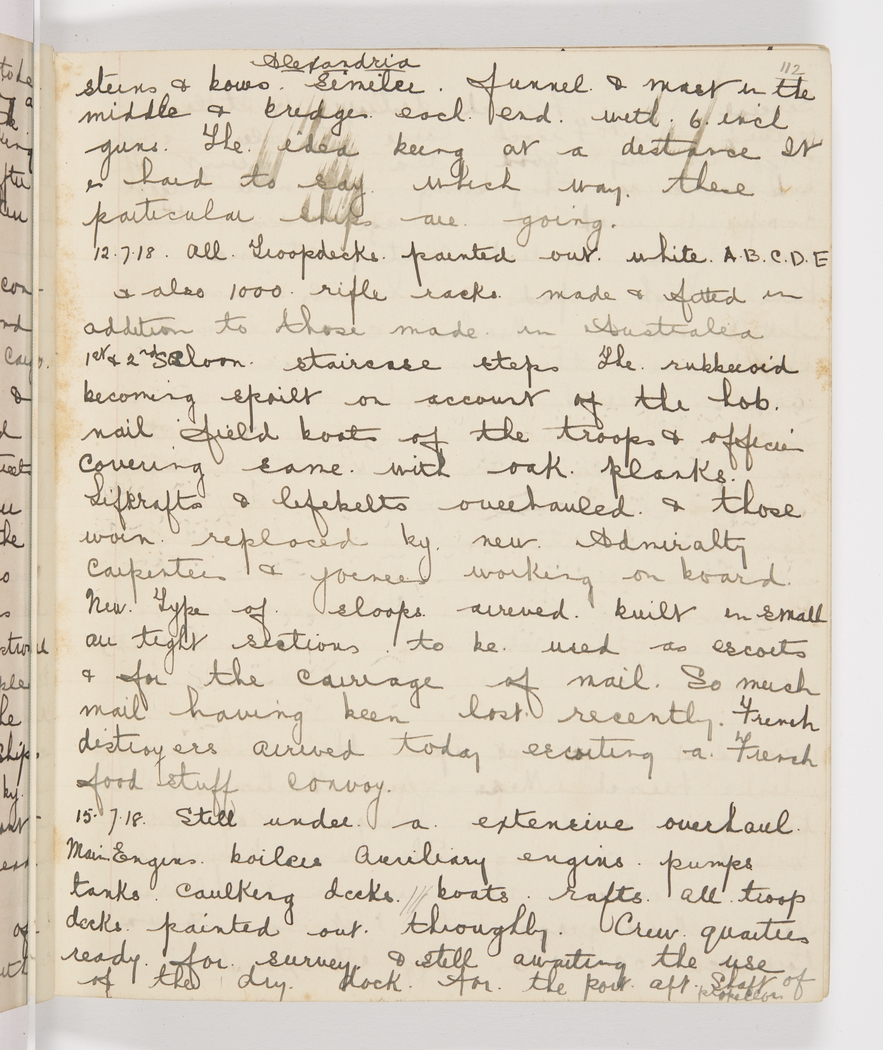 Alexandria
112
sterns & bows. Similer. funnel & mast in the
middle & bridges each end. with. 6. inch
guns. The. idea being at a distance It
is hard to say which way. these
particular ships are going.
12.7.18. All. Troopdecks. painted out. white. A.B.C.D.E
& also 1000. rifle racks. made & fitted in
addition to those made. in Australia
1st & 2nd Saloon. staircase steps The. rubberoid
becoming spoilt on account of the hob.
nail field boots of the troops & officers
covering same. with oak. planks.
Lifkrafts & lifebelts overhauled. & those
worn. replaced by. new. Admiralty
Carpenters & joeners working on board.
New. Type of. sloops. arrived. built in small
air tight sections. to be. used as escorts
& for the carriage of mail. So much
mail having been lost recently. French
distroyers arrived today escorting a. French
food stuff convoy.
15.7.18. Still under. a. extensive overhaul.
Main Engins. boilers Auxiliary engins. pumps
tanks. caulking decks. boats. rafts. all troop
decks. painted out. throughly. Crew. quarters
ready. for. survey. & still awaiting the use
of the dry. dock. for. the port. aft. Shaft of
propellor.